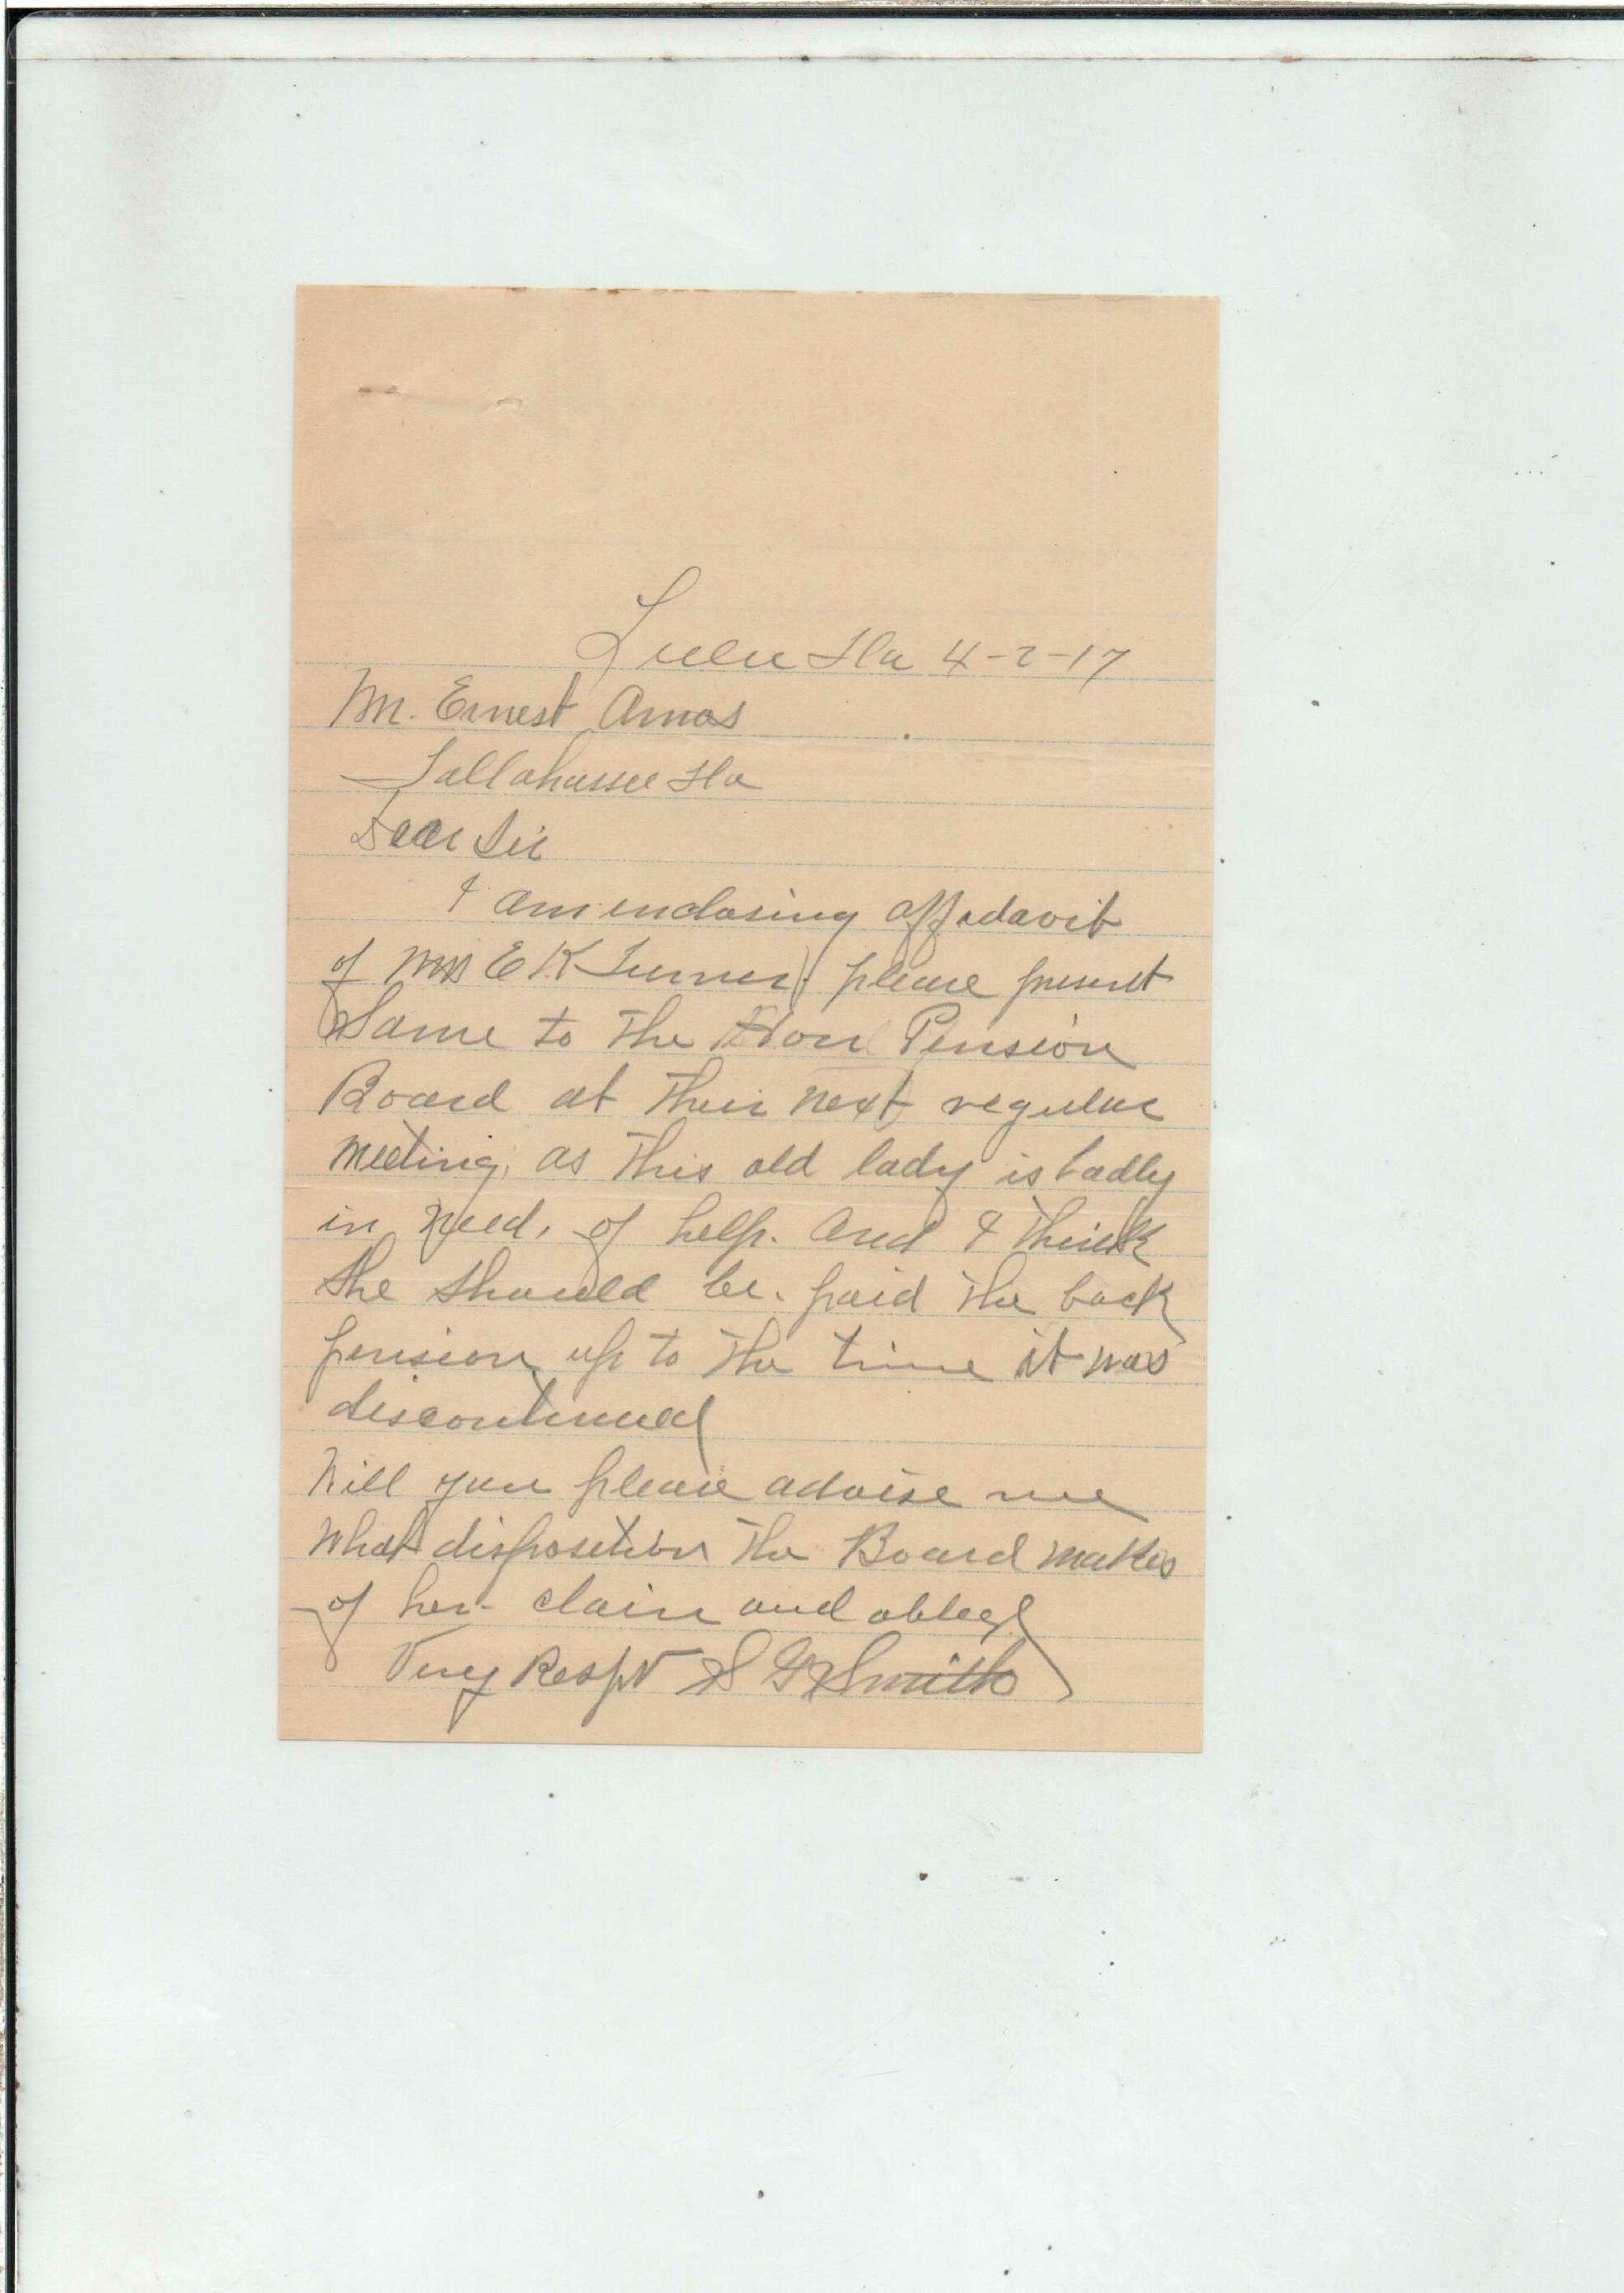 Lulu Fla 4-2-17
Mr. Ernest Amos
Tallahassee Fla
Dear Sir
I am enclosing affadavit
of Mrs E K Turner, please present
Same to the Hon Pension
Board at their next regular
meeting, as this old lady is badly
in need, of help. and I think
she should be. paid the back
pension up to the time it was
discontinued
Will you please advise me
what disposition the Board makes
of her claim and oblege
Very Respt S G Smith